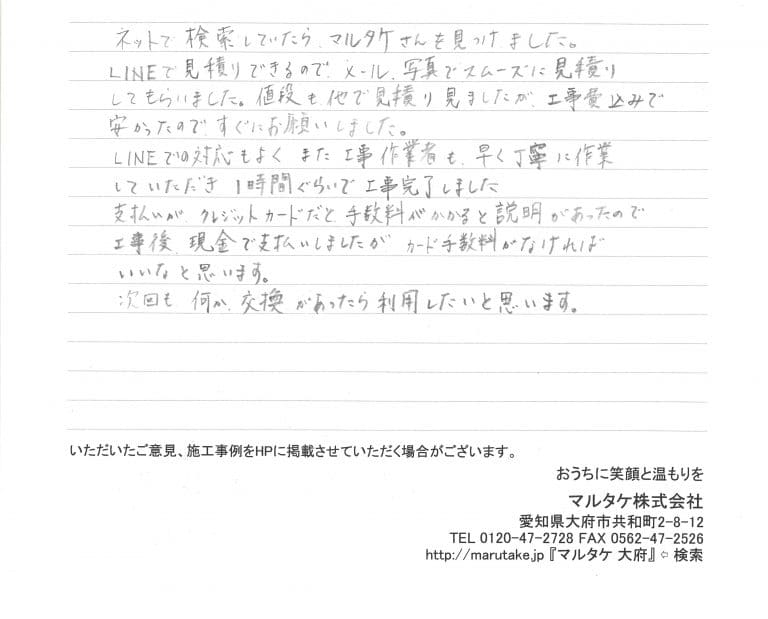 ネットで検索していたら、マルタケさんを見つけました。
LINEで見積りできるので、メール、写真でスムーズに見積り
してもらいました。値段も他で見積り見ましたが、工事費込みで
安かったので、すぐにお願いしました。
LINEでの対応もよく また 工事作業者も、早く丁寧に作業
していただき 1時間ぐらいで工事完了しました
支払いが、クレジットカードだと手数料がかかると説明があったので
工事後、現金で支払いしましたが カード手数料がなければ
いいなと思います。
次回も、何か、交換があったら利用したいと思います。
いただいたご意見、施工事例をHPに掲載させていただく場合がございます。
おうちに笑顔と温もりを
マルタケ株式会社
愛知県大府市共和町2-8-12
TEL 0120-47-2728 FAX 0562-47-2526
http://marutake.jp 『マルタケ 大府』⇦ 検索